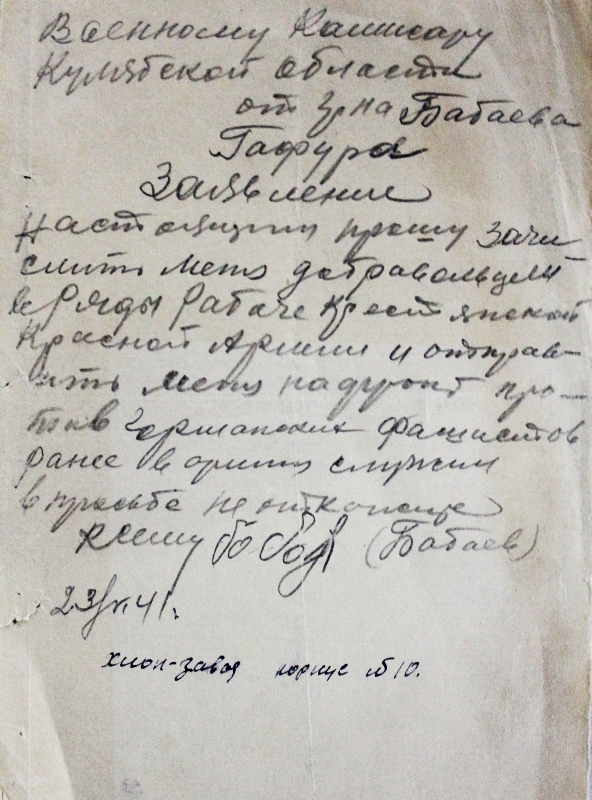 Военному Комисару
Кулябской области
от гр-на Бабаева
Гафура
Заявление
Настоящим прошу зачи-
слить меня добравольцем
в ряды Рабоче крестянской
Красной Армии и отправ-
ить меня на фронт про-
тив Германских фашистов
ранее в армии служил
в прозьбе не откажите
к сему (Бабаев)
23/ 41г.
хлоп-завод корпус №10.